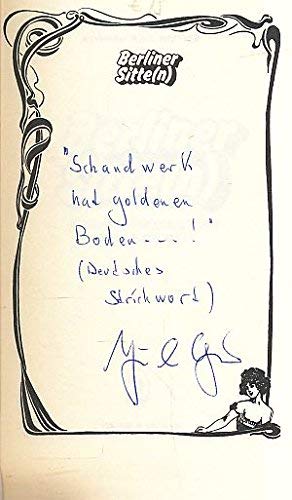 Berliner
Sitte(n)
"Schandwerk
hat goldenen
Boden---!"
(Deutsches
Strichwort)